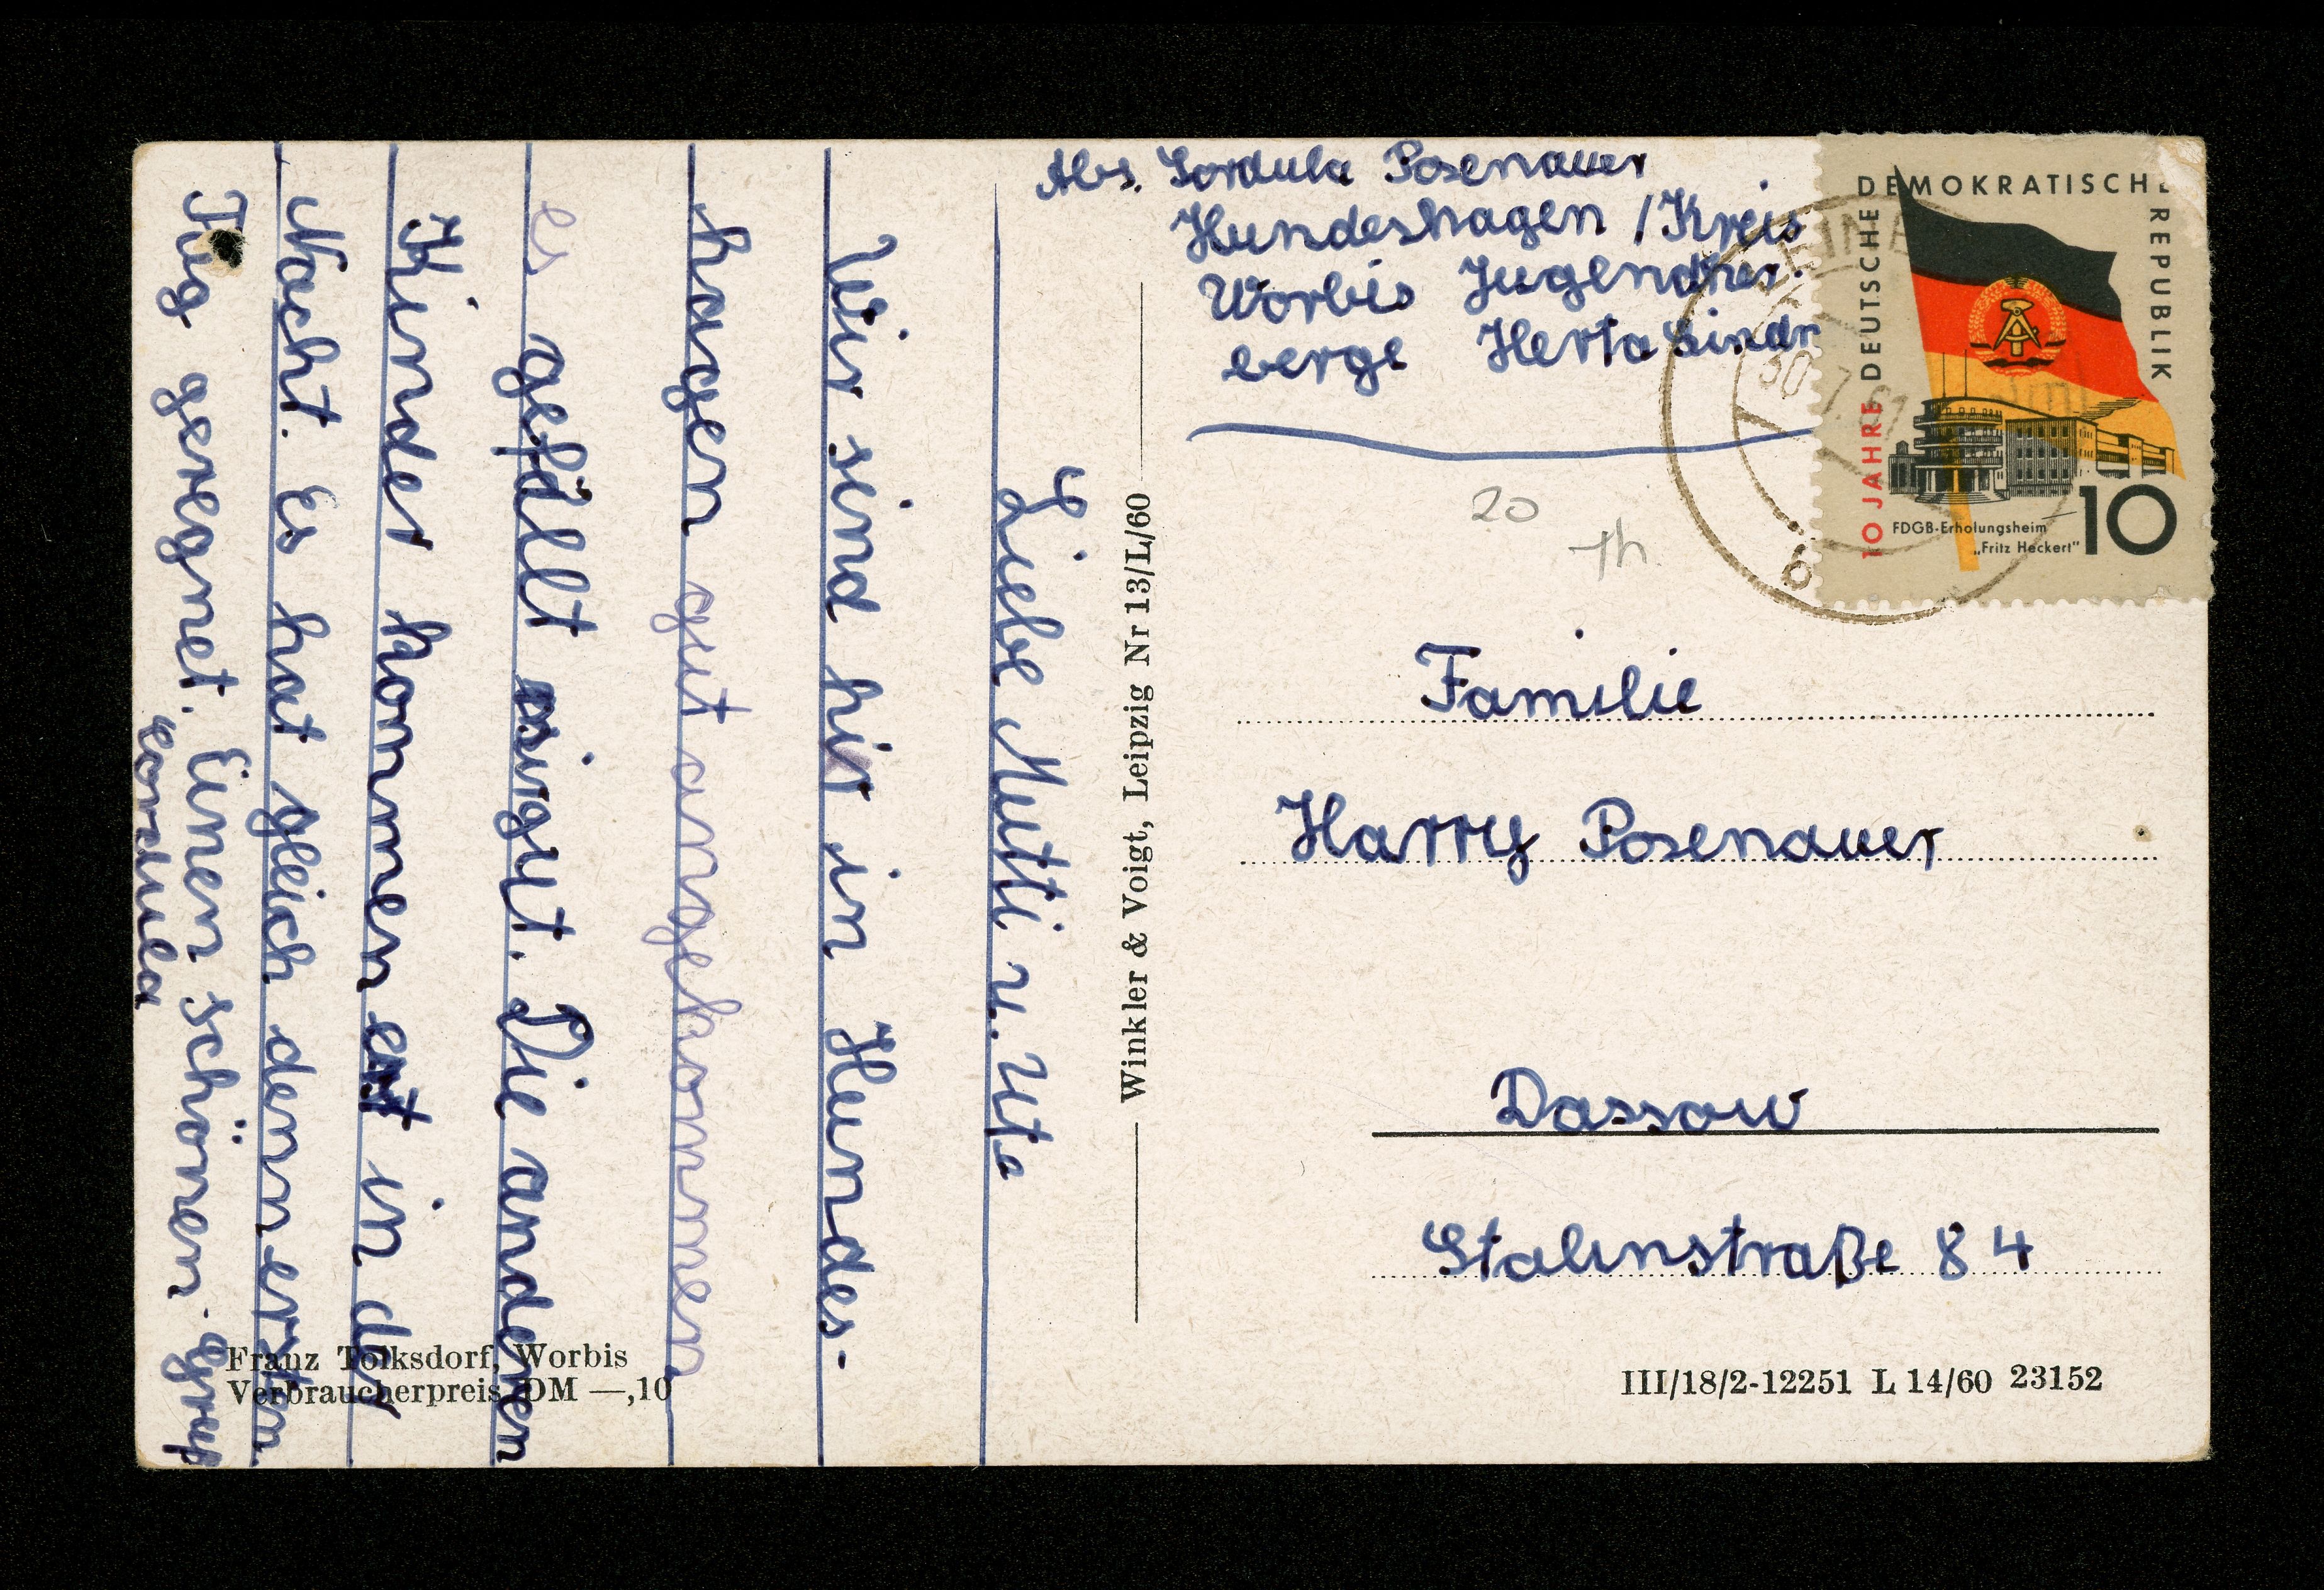 Liebe Mutti u. Ute
Wir sind hir in Hundes-
hagen gut angekommen
es gefällt mir gut. Die anderen
Kinder kommen erst in der
Nacht. Es hat gleich denn ersten
Tag geregnet. Einen schönen Gruß
Cordula
Franz Tolksdorf, Worbis
Verbraucherpreis DM —,10
Winkler & Voigt, Leipzig Nr 13/L/60
Abs. Cordula Posenauer
Hundeshagen / Kreis
Worbis Jugendher.
berge Herta Lindn
DEUTSCHE DEMOKRATISCHE REPUBLIK
10 JAHRE
FDGB-Erholungsheim
„Fritz Heckert"
10
20
Th.
Familie
Harry Posenauer
Dassow
Stalinstraße 84
III/18/2-12251 L 14/60 23152